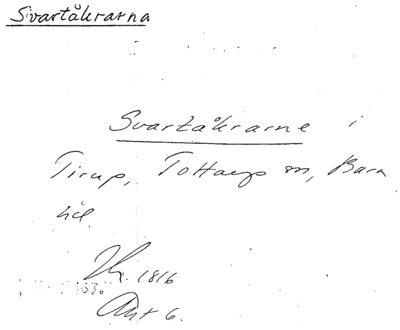 Svartåkrarna
Svartåkrarne i
Tirup, Tottarp sn, Bara
hd.
1816
Akt 6.